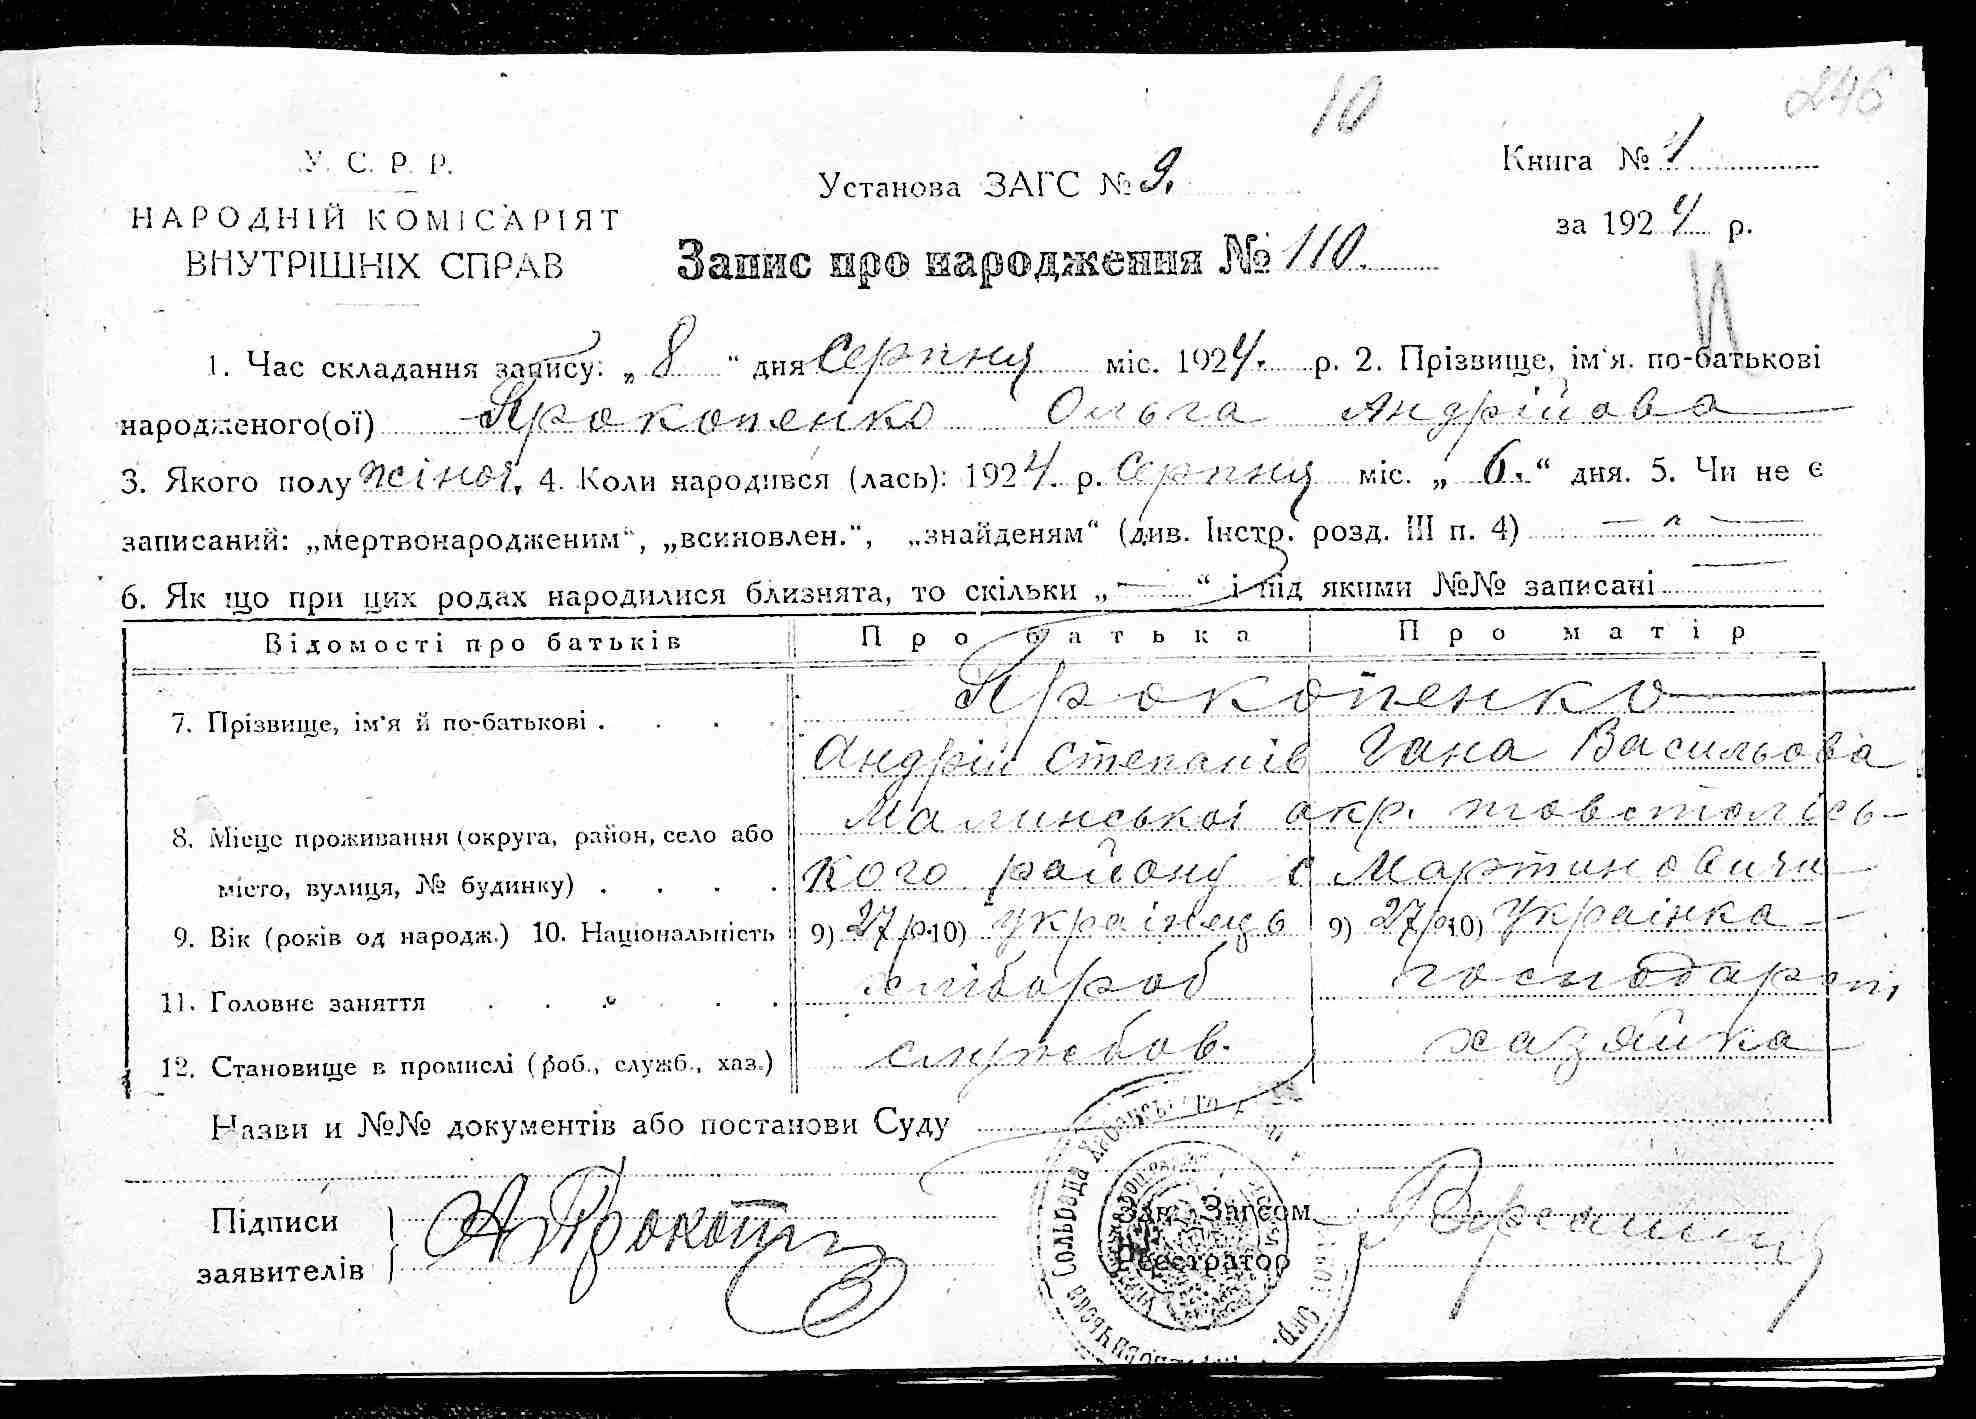 10
246
У. С. Р. Р.
НАРОДНІЙ КОМІСАРІЯТ
ВНУТРІШНІХ СПРАВ
Установа ЗАГС № 9.
Книга № 1
за 1924 р.
Запис про народження № 110.
1. Час складання запису: „ 8 “ дня Серпня міс. 1924. р. 2. Прізвище, ім'я, по-батькові
народженого(ої) Прокопенко Ольга Андрійова
3. Якого полу жіноч. 4. Коли народився (лась): 1924. р. Серпня міс. „ 6. “ дня. 5. Чи не є
записаний: „мертвонародженим“, „всиновлен.“, „знайденям“ (див. Інстр. розд. III п. 4)
6. Як що при цих родах народилися близнята, то скільки „ — “ і під якими №№ записані —
Відомості про батьків Про батька Про матір
7. Прізвище, ім'я й по-батькові . . . . Прокопенко
Андрій Степанів Гана Васильова
8. Місце проживання (округа, район, село або Малинської окр. товстолісь-
місто, вулиця, № будинку) . . . . кого району с Мартиновичи
9. Вік (років од народж.) 10. Національність 9) 27 р. 10) українець 9) 27 р. 10) Українка
11. Головне заняття . . . . . хлібороб господарст,
12. Становище в промислі (роб., служб., хаз.) службов. хазяйка
Назви и №№ документів або постанови Суду
Підписи
заявителів
А Прокоп
Зав. Загсом
Реєстратор
Сольрада Хабенського